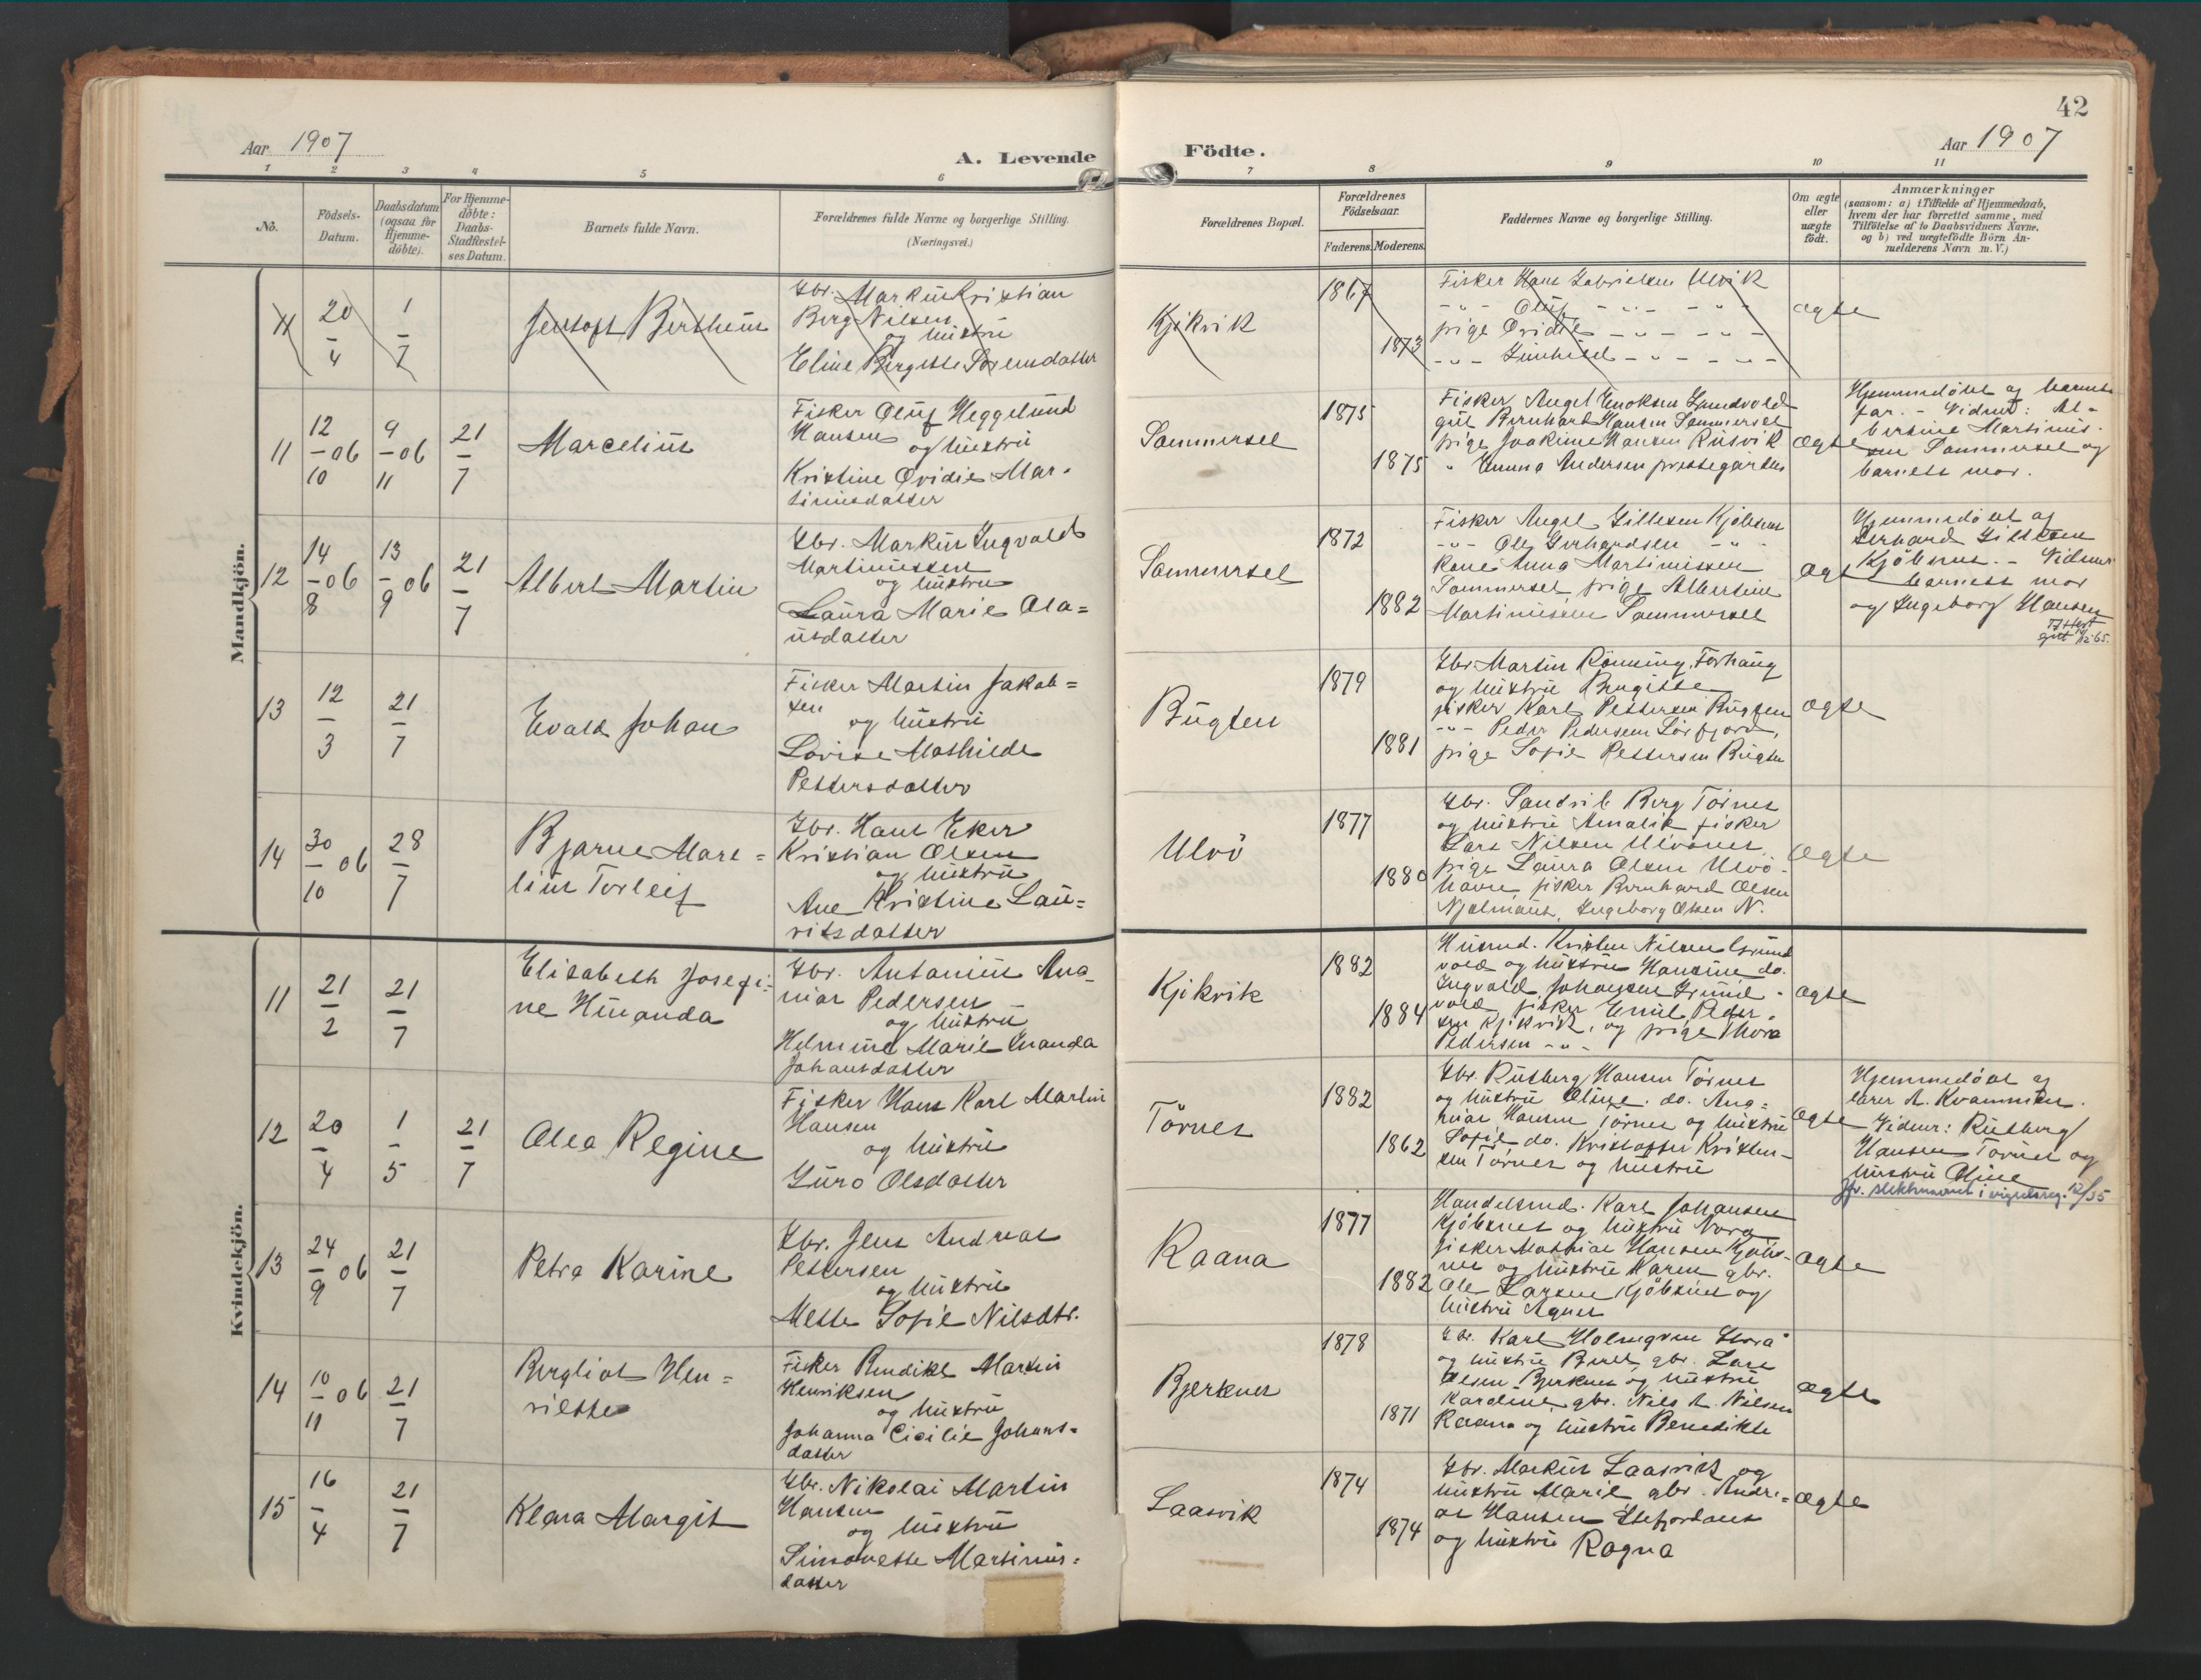 42
Aar 1907
A. Levende
Födte.
Aar 1907
1 2 3 4 5 6 7 8 9 10 11
No.
Födsels-
Datum.
Daabsdatum
(ogsaa for
Hjemme-
döbte).
For Hjemme-
döbte:
Daabs-
Stadfæstel-
ses Datum.
Barnets fulde Navn.
Forældrenes fulde Navne og borgerlige Stilling.
(Næringsvei.)
Forældrenes Bopæl.
Forældrenes
Födselsaar.
Faderens. Moderens.
Faddernes Navne og borgerlige Stilling.
Om ægte
eller
uægte
födt.
Anmærkninger
(saasom: a) i Tilfælde af Hjemmedaab,
hvem der har forrettet samme, med
Tilföielse af to Daabsvidners Navne,
og b) ved uægtefödte Börn An-
melderens Navn m. V.)
Mandkjön.
11
20/4
1/7
Jentoft Bertheus
Gbr. Markus Kristian
Berg Nilsen
og hustru
Eline Birgitte Sørensdatter
Kjikvik
1867
1873
Fisker Hans Gabrielsen Ulvik
-"- Oluf -"- -"-
pige Ovidie -"- -"-
-"- Gunhild -"- -"-
ægte
11
12/10 06
9/11 06
21/7
Marcelius
Fisker Oluf Heggelund
Hansen
og hustru
Kristine Ovidie Mar-
tinusdatter
Sommersel
1875
1875
Fisker Angel Enoksen Grundvold
gut Bernhard Hansen Sommersel
pige Joakime Hansen Rusvik
" Emma Andersen prestegården
ægte
Hjemmedöbt af barnets
far. - Vidner: Al-
bertine Martinus-
sen Sommersel og
barnets mor.
12
14/8 06
13/9 06
21/7
Albert Martin
Gbr. Markus Ingvald
Martinussen
og hustru
Laura Marie Ola-
usdatter
Sommersel
1872
1882
Fisker Angel Gillesen Kjöbsnes
-"- Ole Gerhardsen -"-
kone Anna Martinussen
Sommersel, pige Albertine
Martinussen Sommersel
ægte
Hjemmedöbt af
Gerhard Gillesen
Kjöbsnes. - Vidner
barnets mor
og Ingeborg Hansen
13
12/3
21/7
Evald Johan
Fisker Martin Jakob-
sen
og hustru
Lovise Mathilde
Pettersdatter
Bugten
1879
1881
Gbr. Martin Rönning, Forhaug
og hustru Birgitte
fisker Karl Pettersen Bugten
-"- Peder Pedersen Sörfjord,
pige Sofie Pettersen Bugten
ægte
14
30/10 06
28/7
Bjarne Mare-
lius Torleif
Gbr. Hans Eker
Kristian Olsen
og hustru
Ane Kristine Lau-
ritsdatter
Ulvö
1877
1880
Gbr. Sandrik Berg Törnes
og hustru Amalie fisker
Lars Nilsen Ulvönes
pige Laura Olsen Ulvö-
havn, fisker Bernhard Olsen
Njalmaus, Ingeborg Olsen N.
ægte
Kvindekjön.
11
21/2
21/7
Elisabeth Josefi-
ne Huanda
Gbr. Antonius Ana-
nias Pedersen
og hustru
Helmine Marie Huanda
Johansdatter
Kjikvik
1882
1884
Husmd. Kristen Nilsen Grund
vold og hustru Hansine do.
Ingvald Johansen Grund-
vold fisker Emil Peder-
sen Kjikvik, og pige Thora
Pedersen -"-
ægte
12
20/4
1/5
21/7
Alea Regine
Fisker Hans Karl Martin
Hansen
og hustru
Guro Olsdatter
Törnes
1882
1862
Gbr. Rutberg Hansen Törnes
og hustru Oline. do. Ana-
nias Hansen Törnes og hustru
Sofie do. Kristoffer Kristen-
sen Törnes og hustru
ægte
Hjemmedöbt af
lærer A. Kvammen.
Vidner: Rutberg
Hansen Törnes og
hustru Oline
13
24/9 06
21/7
Petra Karine
Gbr. Jens Andreas
Pettersen
og hustru
Mette Sofie Nilsdtr.
Raana
1877
1882
Handelsmd. Karl Johansen
Kjöbsnes og hustru Nora
fisker Mathias Hansen Kjöbs-
nes og hustru Karen gbr.
Ole Larsen Kjöbsnes og
hustru Agnes
ægte
14
10/11 06
21/7
Bergliot Hen-
riette
Fisker Bendikt Martin
Henriksen
og hustru
Johanna Cicilie Johans-
datter
Bjerknes
1878
1871
Gbr. Karl Holmgren Storå
og hustru Beret gbr. Lars
Olsen Bjerknes og hustru
Karoline, gbr. Nils A. Nilsen
Raana og hustru Benedikte
ægte
15
16/4
21/7
Klara Margit
Gbr. Nikolai Martin
Hansen
og hustru
Simonette Martinus-
datter
Laasvik
1874
1874
Gbr. Markus Laasvik og
hustru Marie gbr. Andre-
as Hansen Stefjordnes
og hustru Ragna
ægte